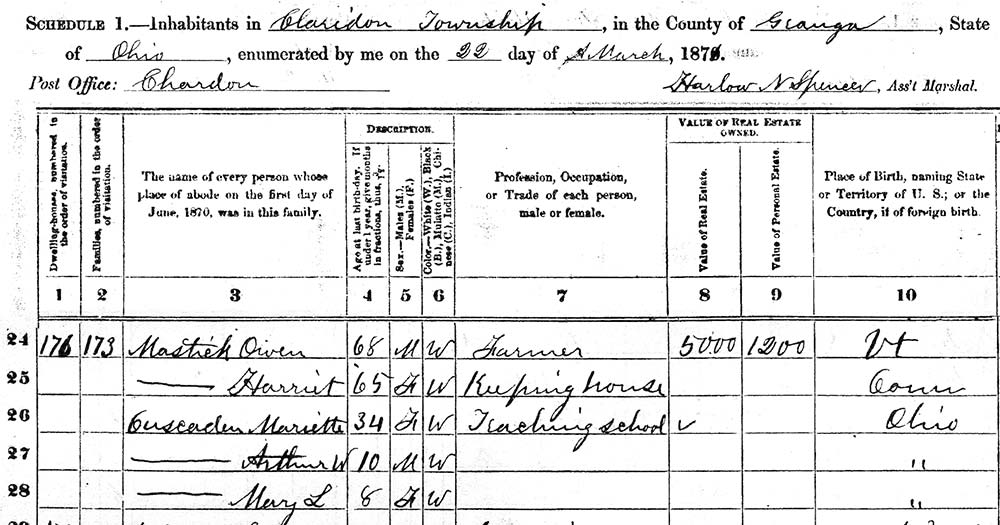 SCHEDULE 1.—Inhabitants in Claridon Township, in the County of Geauga, State
of Ohio, enumerated by me on the 22 day of March, 187
Post Office: Chardon Harlow N Spencer, Ass't Marshal.
Dwelling-houses, numbered in the order of visitation.
Families, numbered in the order of visitation.
The name of every person whose
place of abode on the first day of
June, 1870, was in this family.
DESCRIPTION.
Age at last birth-day. If under 1 year, give months in fractions, thus,
Sex.—Males (M.), Females (F.)
Color.—White (W.), Black (B.), Mulatto (M.), Chinese (C.), Indian (I.)
Profession, Occupation,
or Trade of each person,
male or female.
VALUE OF REAL ESTATE
OWNED.
Value of Real Estate.
Value of Personal Estate.
Place of Birth, naming State
or Territory of U. S.; or the
Country, if of foreign birth.
1 2 3 4 5 6 7 8 9 10
24 176 173 Mastick Owen 68 M W Farmer 5000 1200 Vt
25 —— Harriet 65 F W Keeping house Conn
26 Cuscaden Mariette 34 F W Teaching school ✓ Ohio
27 —— Arthur W 10 M W "
28 —— Mary L 8 F W "